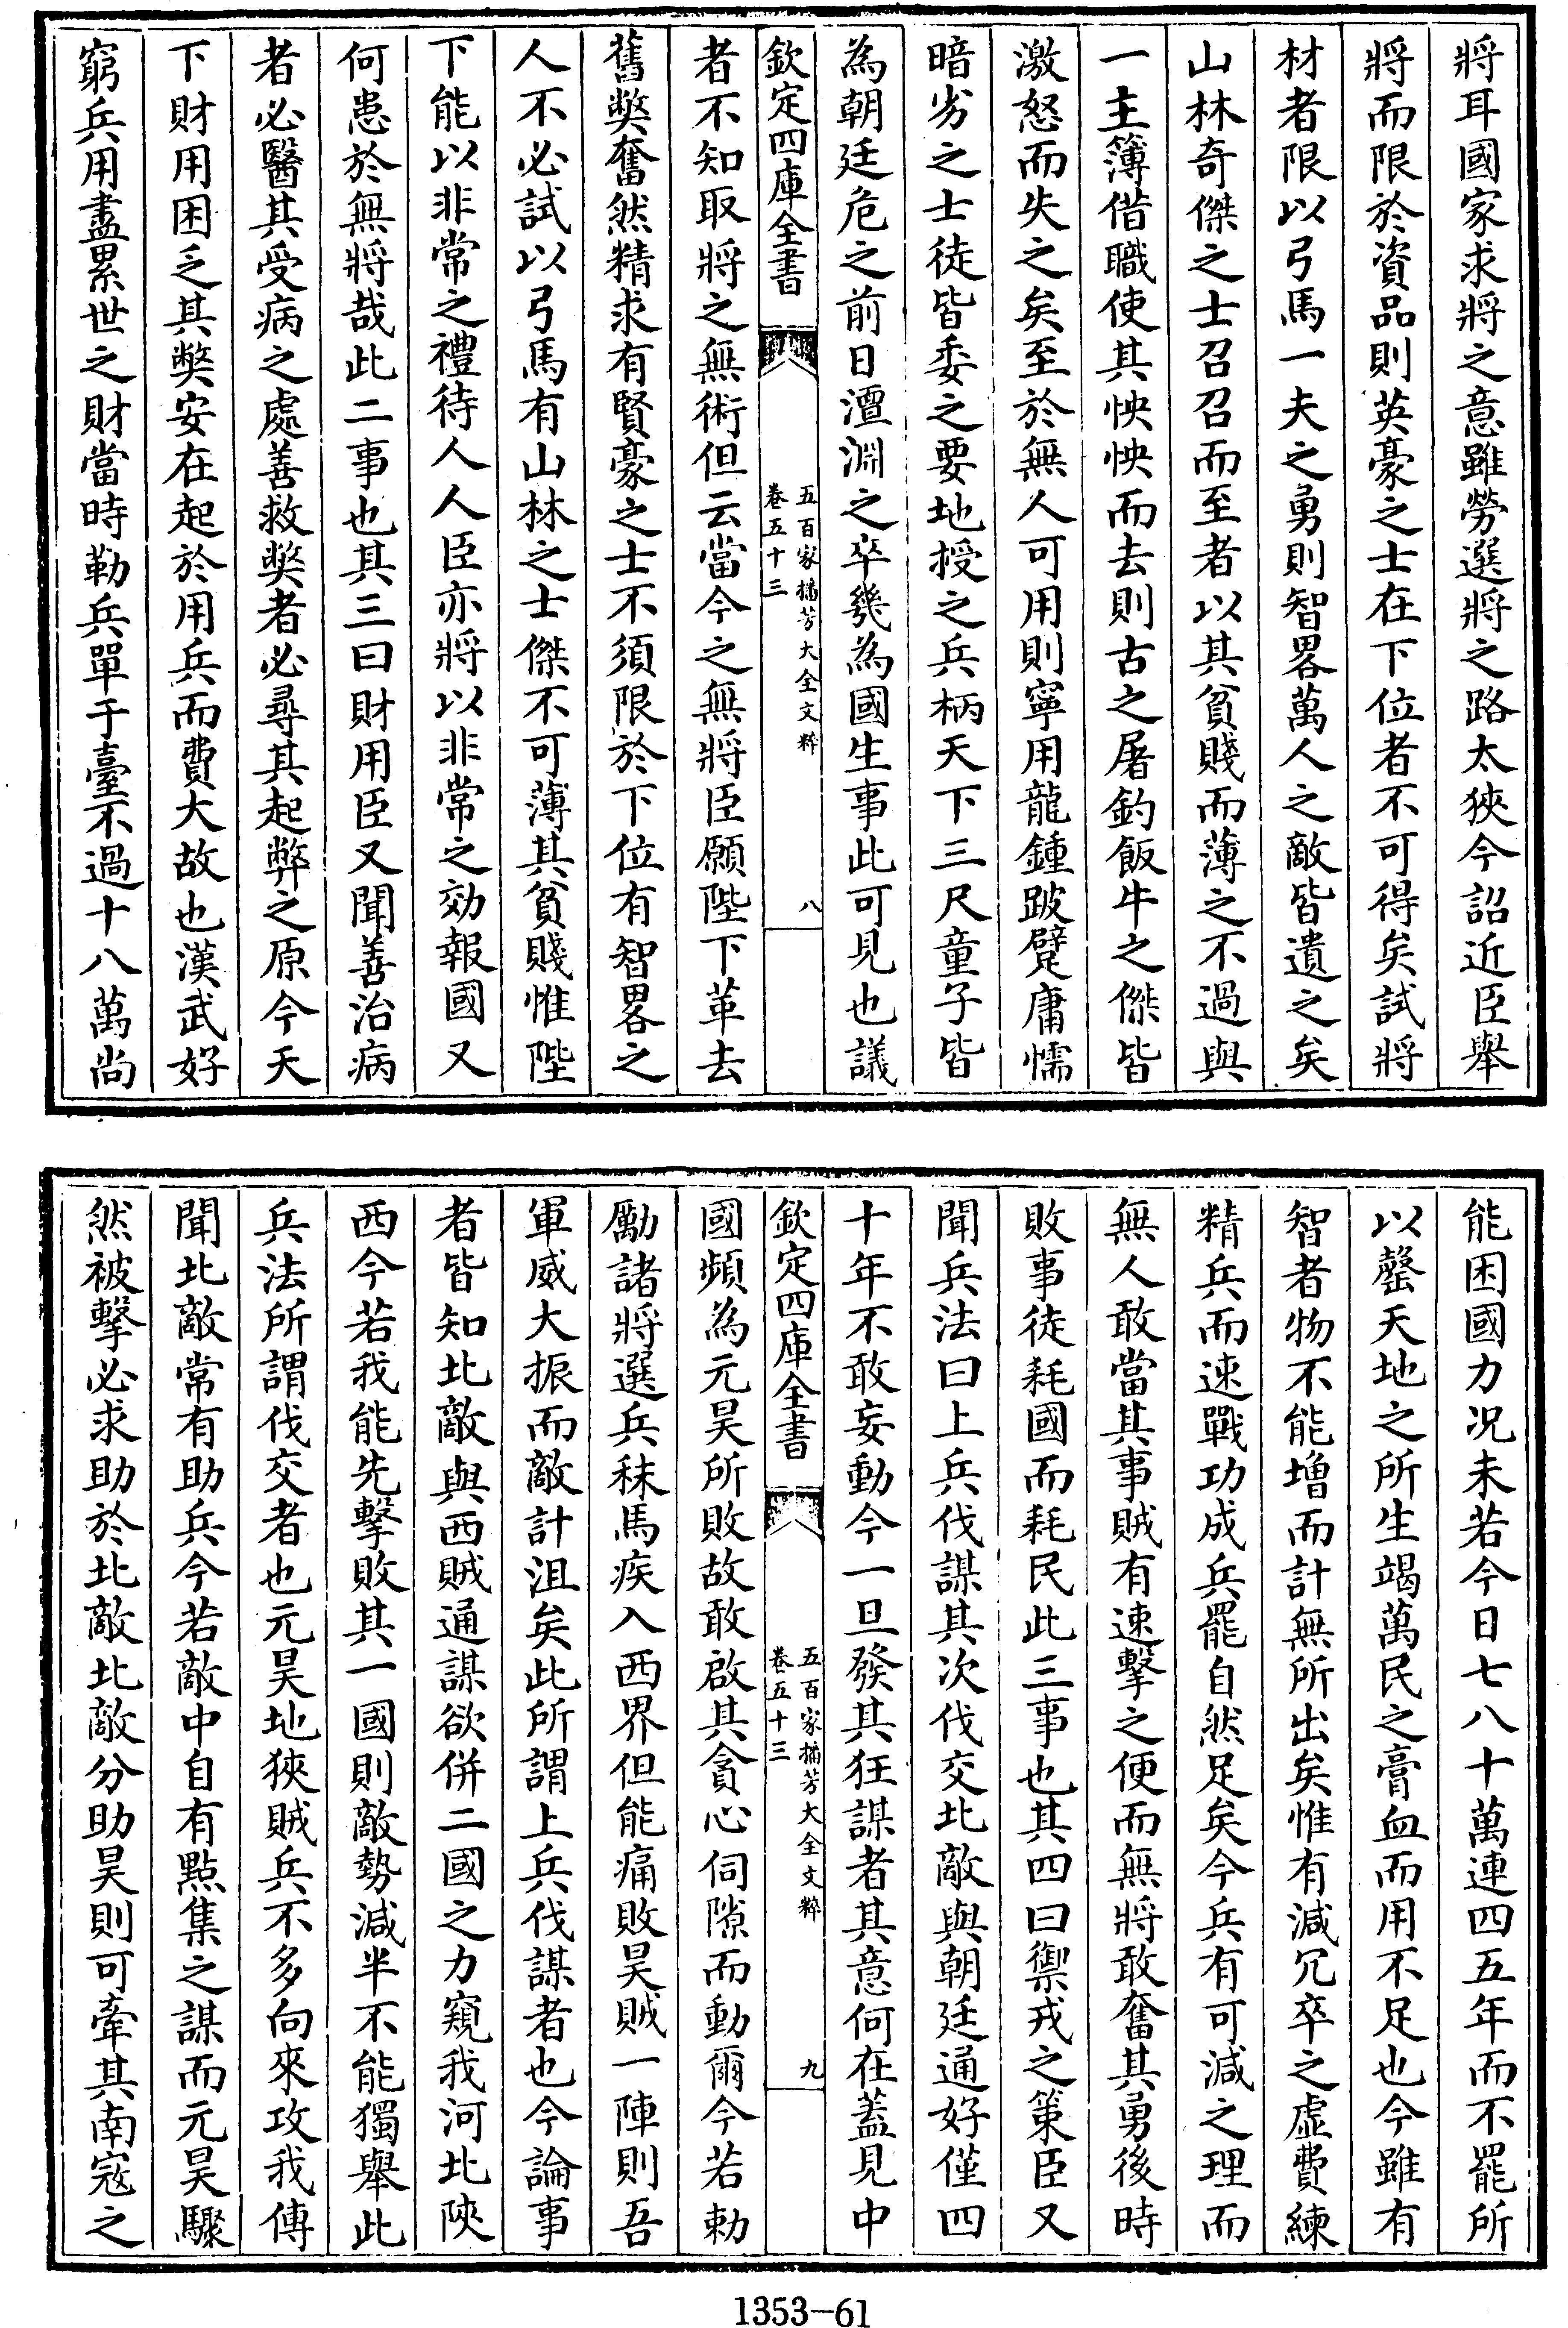 將耳國家求將之意雖勞選將之路太狹今詔近臣舉
將而限於資品則英豪之士在下位者不可得矣試將
材者限以弓馬一夫之勇則智畧萬人之敵皆遺之矣
山林奇傑之士召召而至者以其貧賤而薄之不過與
一主簿借職使其怏怏而去則古之屠釣飯牛之傑皆
激怒而失之矣至於無人可用則寧用龍鍾跛躄庸懦
暗劣之士徒皆委之要地授之兵柄天下三尺童子皆
為朝廷危之前日澶淵之卒幾為國生事此可見也議
欽定四庫全書
五百家播芳大全文粹
卷五十三
八
者不知取將之無術但云當今之無將臣願陛下革去
舊弊奮然精求有賢豪之士不須限於下位有智畧之
人不必試以弓馬有山林之士傑不可薄其貧賤惟陛
下能以非常之禮待人人臣亦將以非常之効報國又
何患於無將哉此二事也其三曰財用臣又聞善治病
者必醫其受病之處善救弊者必尋其起弊之原今天
下財用困乏其弊安在起於用兵而費大故也漢武好
窮兵用盡累世之財當時勒兵單于臺不過十八萬尚
能困國力况未若今日七八十萬連四五年而不罷所
以罄天地之所生竭萬民之膏血而用不足也今雖有
智者物不能增而計無所出矣惟有減冗卒之虛費練
精兵而速戰功成兵罷自然足矣今兵有可減之理而
無人敢當其事賊有速擊之便而無將敢奮其勇後時
敗事徒耗國而耗民此三事也其四曰禦戎之策臣又
聞兵法曰上兵伐謀其次伐交北敵與朝廷通好僅四
十年不敢妄動今一旦發其狂謀者其意何在蓋見中
欽定四庫全書
五百家播芳大全文粹
卷五十三
九
國頻為元昊所敗故敢啟其貪心伺隙而動爾今若勅
勵諸將選兵秣馬疾入西界但能痛敗昊賊一陣則吾
軍威大振而敵計沮矣此所謂上兵伐謀者也今論事
者皆知北敵與西賊通謀欲併二國之力窺我河北陝
西今若我能先擊敗其一國則敵勢減半不能獨舉此
兵法所謂伐交者也元昊地狹賊兵不多向來攻我傳
聞北敵常有助兵今若敵中自有點集之謀而元昊驟
然被擊必求助於北敵北敵分助昊則可牽其南寇之
1353-61